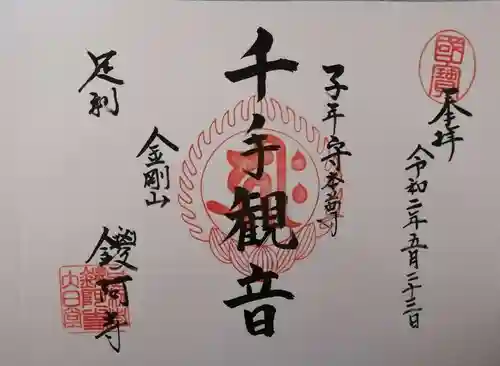 國寶
奉拝
令和二年五月二十三日
子年守本尊
千手観音
足利
金剛山
鑁阿寺
大日堂